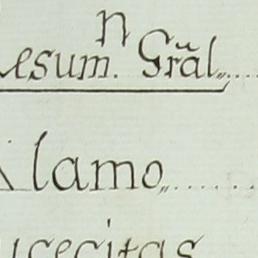 n
Resum. Grãl
Alamo
ucecitas